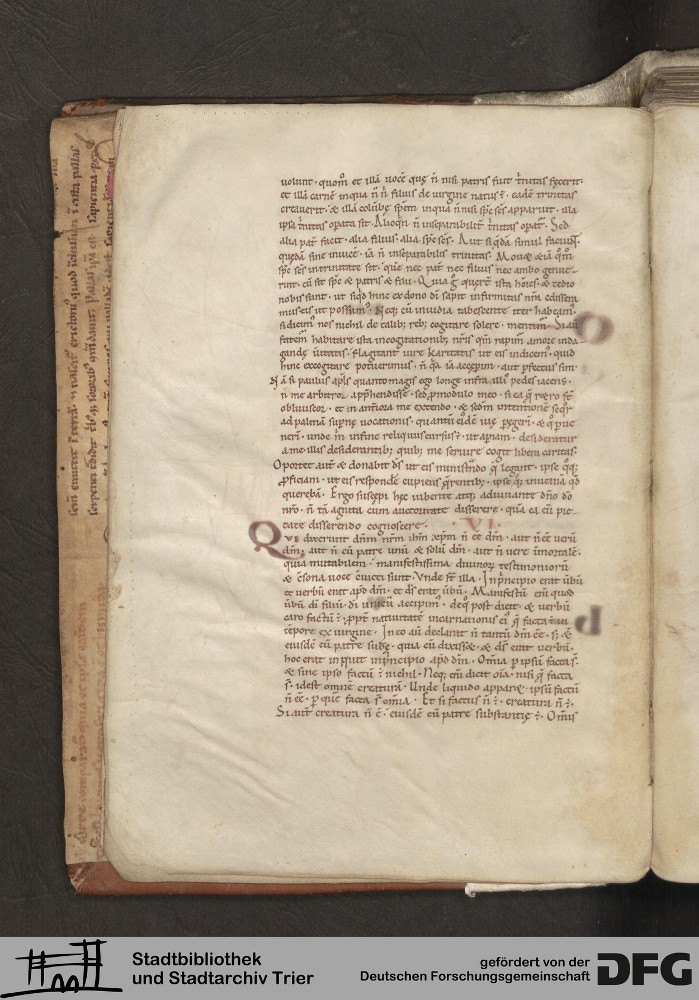 uolunt · quom̄ et illā uocē quę n̄ nisi patris fuit t̄nitas fęcerit ·
et illā carnē in qua n̄ n̄ filius de uirgine natus ē · eadē trinitas
creauerit · & illā colūbę spēm in qua n̄ nisi spc̄ scs̄ apparuit · illa
ipsa t̄nitas opata sit · Alioq̄n n̄ inseparabilit̄ t̄nitas opat̄ · Sed
alia pat̄ facit · alia filius · alia spc̄ scs̄ · Aut si q̄dā simul faciunt
quędā sine inuicē · iā n̄ inseparabilis trinitas · Mouet etiā q̄m̄
spc̄ scs̄ in trinitate sit · quē nec pat̄ nec filius nec ambo genue
rint · cū sit spc̄ & patris & filii · Quia g̊ querūt ista hoīes · & tedio
nobis sunt · ut siq̄d hinc ex dono dī sapit infirmitas nr̄a edissera
mus eis ut possum⁹ · Neq; cū inuidia tabescente iter habeam⁹ ·
si dicim⁹ nos nichil de talib; reb; cogitare solere · mentim̄ · Si aū
fatem̄ habitare ista in cogitationib; nr̄is qm̄ rapim̄ amore inda
gandę ūitatis · flagitant iure karitatis ut eis indicem⁹ · quid
hinc excogitare potuerimus · n̄ qa iā accepim̄ · aut p̄fectus sim
Nā si paulus apl̄s quanto magis ego longe infra illi⁹ pedes iacens ·
n̄ me arbitror app̄hendisse · sed p modulo meo · si ea q̄ retro st̄
obliuiscor · et in anteriora me extendo · & scdm intentionē seq̄r
ad palmā supnę uocationis · quantū eidē uię p̄egeri · & q̄ p̄ue
neri · unde m̄ in fine reliquus cursus ē · ut apiam · desideratur
a me illis desiderantib; quib; me seruire cogit libera caritas ·
Oportet aut̄ & donabit ds̄ ut eis ministrādo q̄ legant · ipse q̄q;
p̄ficiam · ut eis respondē cupiens q̄rentib; · ipse q̄q; inueniā qd
querebā · Ergo suscepi hęc iubente atq; adiuuante dn̄o dō
nr̄o · n̄ tā agnita cum auctoritate disserere · quā ea cū pie
tate disserendo cognoscere · VI ·
Qui dixerunt dn̄m nr̄m ihm̄ xpm̄ n̄ ee dm̄ · aut n̄ ee uerū
dm̄ · aut n̄ cū patre unū & solū dm̄ · aut n̄ uere inmortalē ·
quia mutabilem · manifestissima diuinor̄ testimoniorū
& c̄sona uoce c̄uicti sunt · Vnde st̄ illa · In p̄ncipio erat ūbū
et uerbū erat apd dm̄ · et ds̄ erat ūbū · Manifestū enī quod
ūbū dī filiū · dī unicū accipim⁹ · de q̊ post dicit · & uerbū
caro factū ē · ppt̄ natiuitatē incarnationis ei⁹ q̄ facta ē in
tēpore ex uirgine · In eo aū declarat n̄ tantū dm̄ ee · sꝫ &
eiusdē cū patre subę · quia cū dixisset · & ds̄ erat uerbū ·
hoc erat inquit in p̄ncipio apd dm̄ · Omīa p ipsū facta s̄ ·
& sine ipso factū ē nichil · Neq; enī dicit oīa · nisi q̄ facta
s̄ · idest omnē creaturā · Unde liquido apparet ipsū factū
n̄ ee · p que facta s̄ omīa · Et si factus n̄ ē · creatura n̄ ē ·
Si aut̄ creatura n̄ ē · eiusdē cū patre substantię ē · Omīs
O
d
Stadtbibliothek
und Stadtarchiv Trier
gefördert von der
Deutschen Forschungsgemeinschaft
DFG